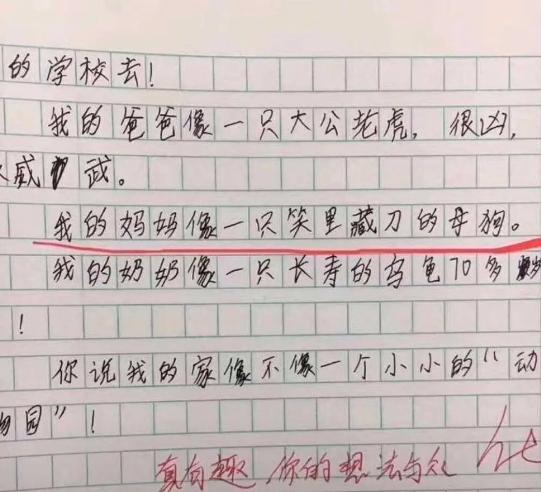 的学校去！
我的爸爸像一只大公老虎，很凶，
威武。
我的妈妈像一只笑里藏刀的母狗。
我的奶奶像一只长寿的乌龟70多
！
你说我的家像不像一个小小的“动
物园”！
真有趣 你的想法与众